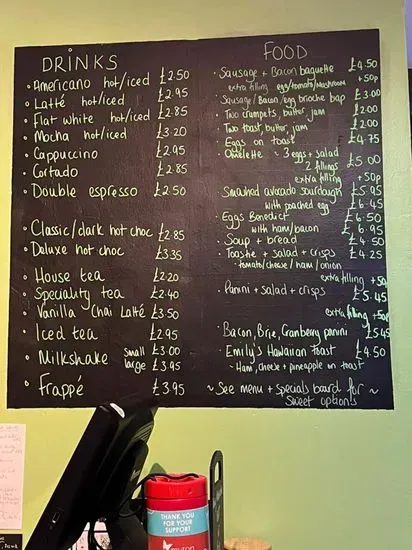 DRINKS
• Americano hot/iced £2.50
• Latté hot/iced £2.95
• Flat white hot/iced £2.85
• Mocha hot/iced £3.20
• Cappuccino £2.95
• Cortado £2.85
• Double espresso £2.50
• Classic/dark hot choc £2.85
• Deluxe hot choc £3.35
• House tea £2.20
• Speciality tea £2.40
• Vanilla Chai Latté £3.50
• Iced tea £2.95
• Milkshake small £3.00
large £3.95
• Frappé £3.95
FOOD
• Sausage + Bacon baguette £4.50
extra filling egg/tomato/mushroom +50p
• Sausage/Bacon/egg brioche bap £3.00
• Two crumpets, butter, jam £2.00
• Two toast, butter, jam £2.00
• Eggs on toast £4.75
• Omelette - 3 eggs + salad
2 fillings £5.00
extra filling +50p
• Smashed avocado sourdough £5.95
with poached egg £6.45
• Eggs Benedict £6.50
with ham/bacon £6.95
• Soup + bread £4.50
• Toastie + salad + crisps £4.25
- tomato/cheese/ham/onion
extra filling +50p
• Panini + salad + crisps £5.45
extra filling +50p
• Bacon, Brie, Cranberry panini £5.45
• Emily's Hawaiian toast £4.50
- Ham, cheese + pineapple on toast
~ See menu + specials board for ~
sweet options
THANK YOU
FOR YOUR
SUPPORT